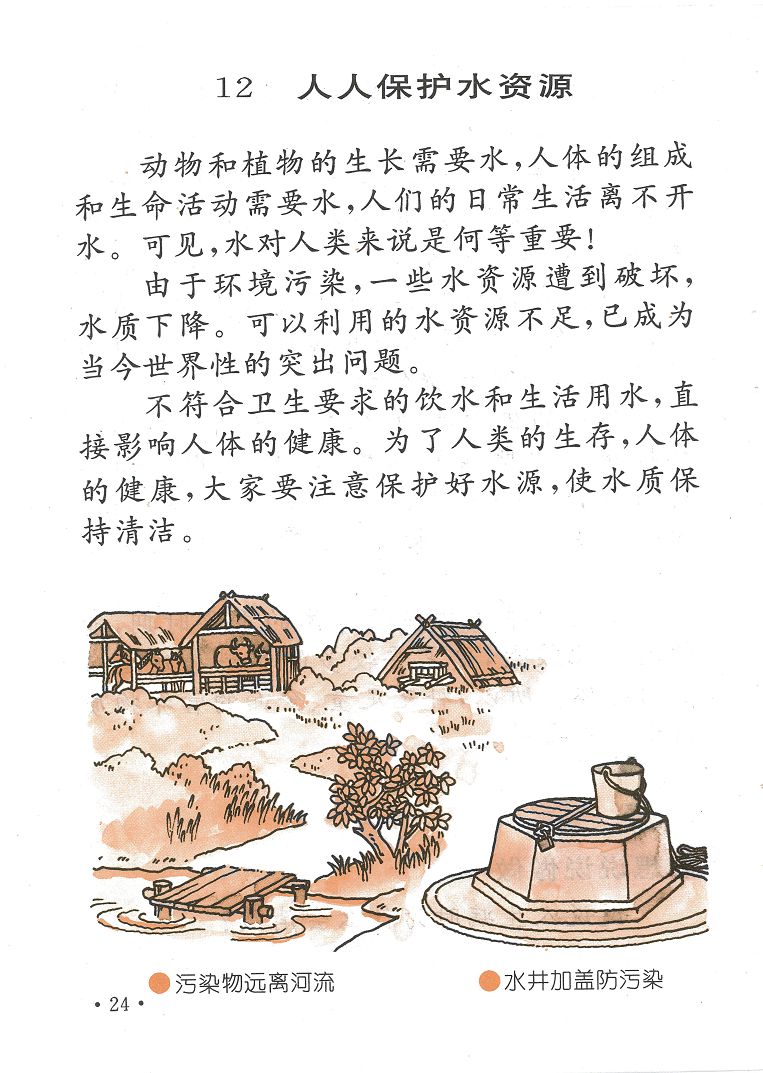 12 人人保护水资源
动物和植物的生长需要水,人体的组成
和生命活动需要水,人们的日常生活离不开
水。可见,水对人类来说是何等重要!
由于环境污染,一些水资源遭到破坏,
水质下降。可以利用的水资源不足,已成为
当今世界性的突出问题。
不符合卫生要求的饮水和生活用水,直
接影响人体的健康。为了人类的生存,人体
的健康,大家要注意保护好水源,使水质保
持清洁。
污染物远离河流
水井加盖防污染
·24·